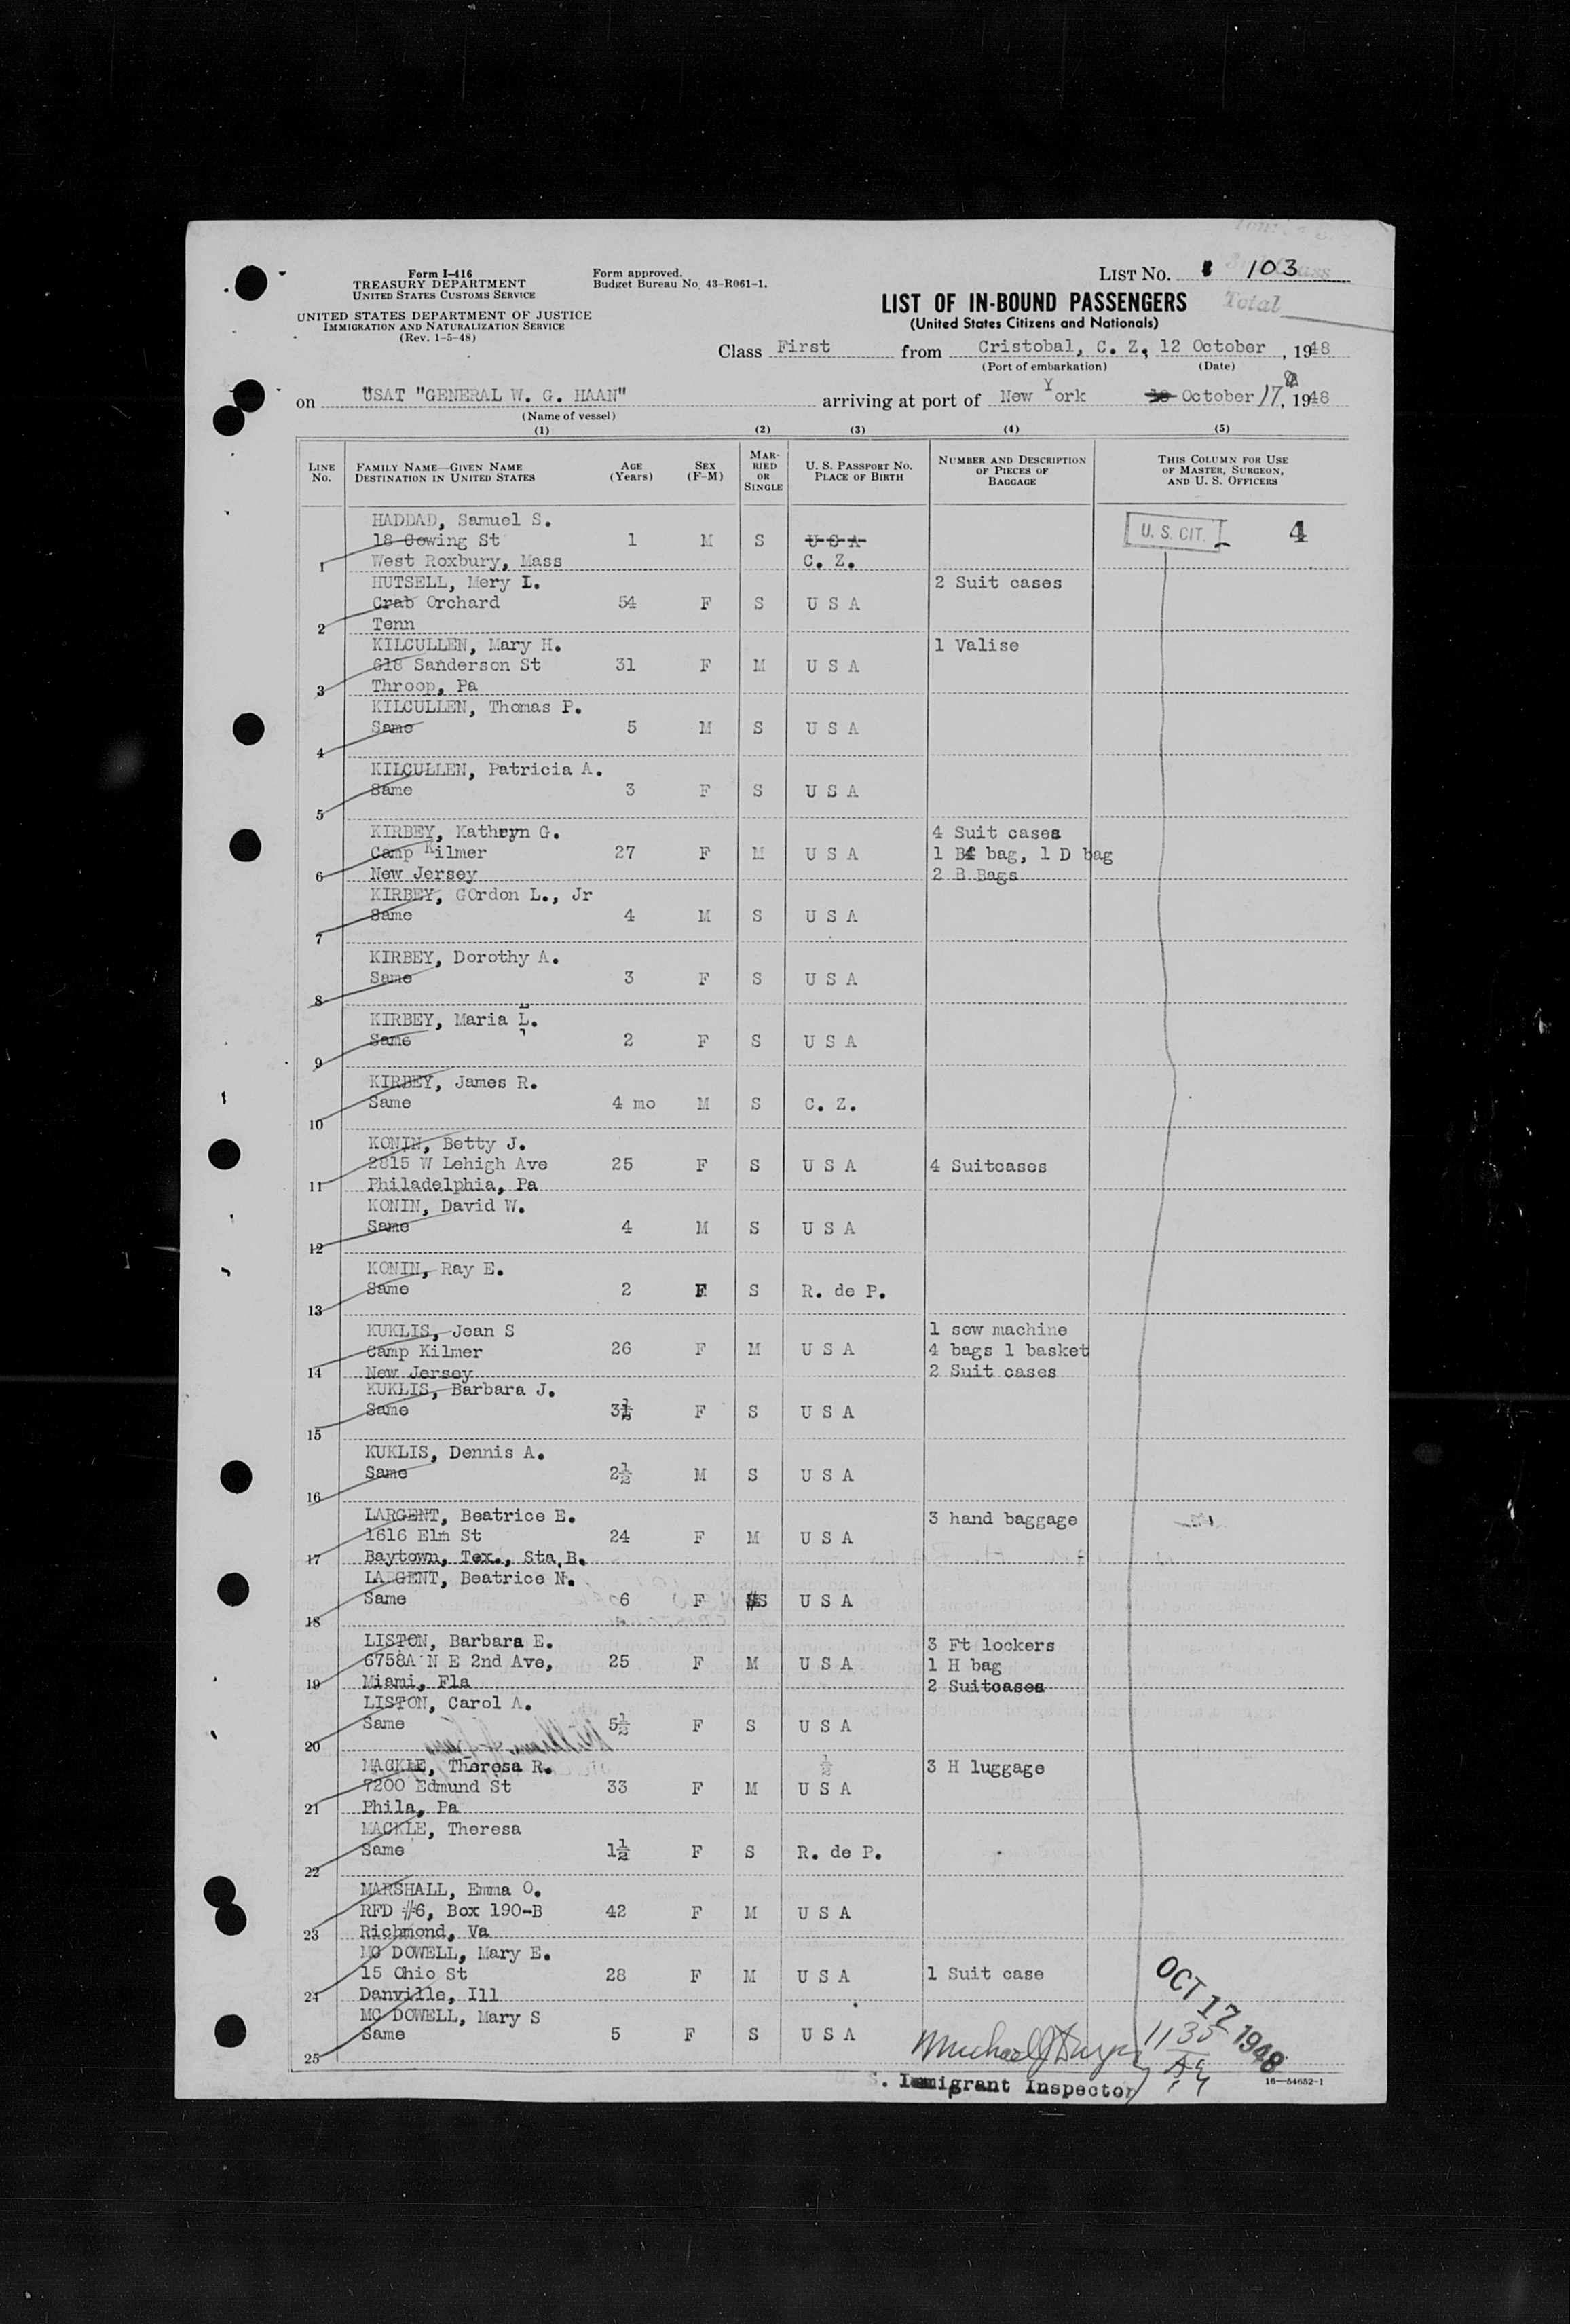 Form I-416
TREASURY DEPARTMENT
UNITED STATES CUSTOMS SERVICE
UNITED STATES DEPARTMENT OF JUSTICE
IMMIGRATION AND NATURALIZATION SERVICE
(Rev. 1-5-48)
Form approved.
Budget Bureau No. 43-R061-1.
LIST NO. 103
Total
LIST OF IN-BOUND PASSENGERS
(United States Citizens and Nationals)
Class First from Cristobal, C. Z., 12 October, 1948
(Port of embarkation) (Date)
on USAT "GENERAL W. G. HAAN" arriving at port of New York October 17, 1948
(Name of vessel)
(1) (2) (3) (4) (5)
LINE NO. FAMILY NAME—GIVEN NAME DESTINATION IN UNITED STATES AGE (Years) SEX (F-M) MARRIED OR SINGLE U. S. PASSPORT NO. PLACE OF BIRTH NUMBER AND DESCRIPTION OF PIECES OF BAGGAGE THIS COLUMN FOR USE OF MASTER, SURGEON, AND U. S. OFFICERS
HADDAD, Samuel S. U. S. CIT. 4
18 Cowing St 1 M S U S A
1 West Roxbury, Mass C. Z.
HUTSELL, Mery L. 2 Suit cases
Crab Orchard 54 F S U S A
2 Tenn
KILCULLEN, Mary H. 1 Valise
618 Sanderson St 31 F M U S A
3 Throop, Pa
KILCULLEN, Thomas P.
Same 5 M S U S A
4
KILCULLEN, Patricia A.
Same 3 F S U S A
5
KIRBEY, Kathryn G. 4 Suit cases
Camp Kilmer 27 F M U S A 1 B4 bag, 1 D bag
6 New Jersey 2 B Bags
KIRBEY, GOrdon L., Jr
Same 4 M S U S A
7
KIRBEY, Dorothy A.
Same 3 F S U S A
8
KIRBEY, Maria L.
Same 2 F S U S A
9
KIRBEY, James R.
Same 4 mo M S C. Z.
10
KONIN, Betty J.
2815 W Lehigh Ave 25 F S U S A 4 Suitcases
11 Philadelphia, Pa
KONIN, David W.
Same 4 M S U S A
12
KONIN, Ray E.
Same 2 F S R. de P.
13
KUKLIS, Jean S 1 sew machine
Camp Kilmer 26 F M U S A 4 bags 1 basket
14 New Jersey 2 Suit cases
KUKLIS, Barbara J.
Same 3½ F S U S A
15
KUKLIS, Dennis A.
Same 2½ M S U S A
16
LARGENT, Beatrice E. 3 hand baggage
1616 Elm St 24 F M U S A
17 Baytown, Tex., Sta B.
LARGENT, Beatrice N.
Same 6 F S U S A
18
LISTON, Barbara E. 3 Ft lockers
6758A N E 2nd Ave, 25 F M U S A 1 H bag
19 Miami, Fla 2 Suitcases
LISTON, Carol A.
Same 5½ F S U S A
20
MACKLE, Theresa R. ½ 3 H luggage
7200 Edmund St 33 F M U S A
21 Phila, Pa
MACKLE, Theresa
Same 1½ F S R. de P.
22
MARSHALL, Emma O.
RFD #6, Box 190-B 42 F M U S A
23 Richmond, Va
MC DOWELL, Mary E.
15 Ohio St 28 F M U S A 1 Suit case
24 Danville, Ill
MC DOWELL, Mary S
Same 5 F S U S A
25
OCT 17 1948
1135
Immigrant Inspector
16—54652-1